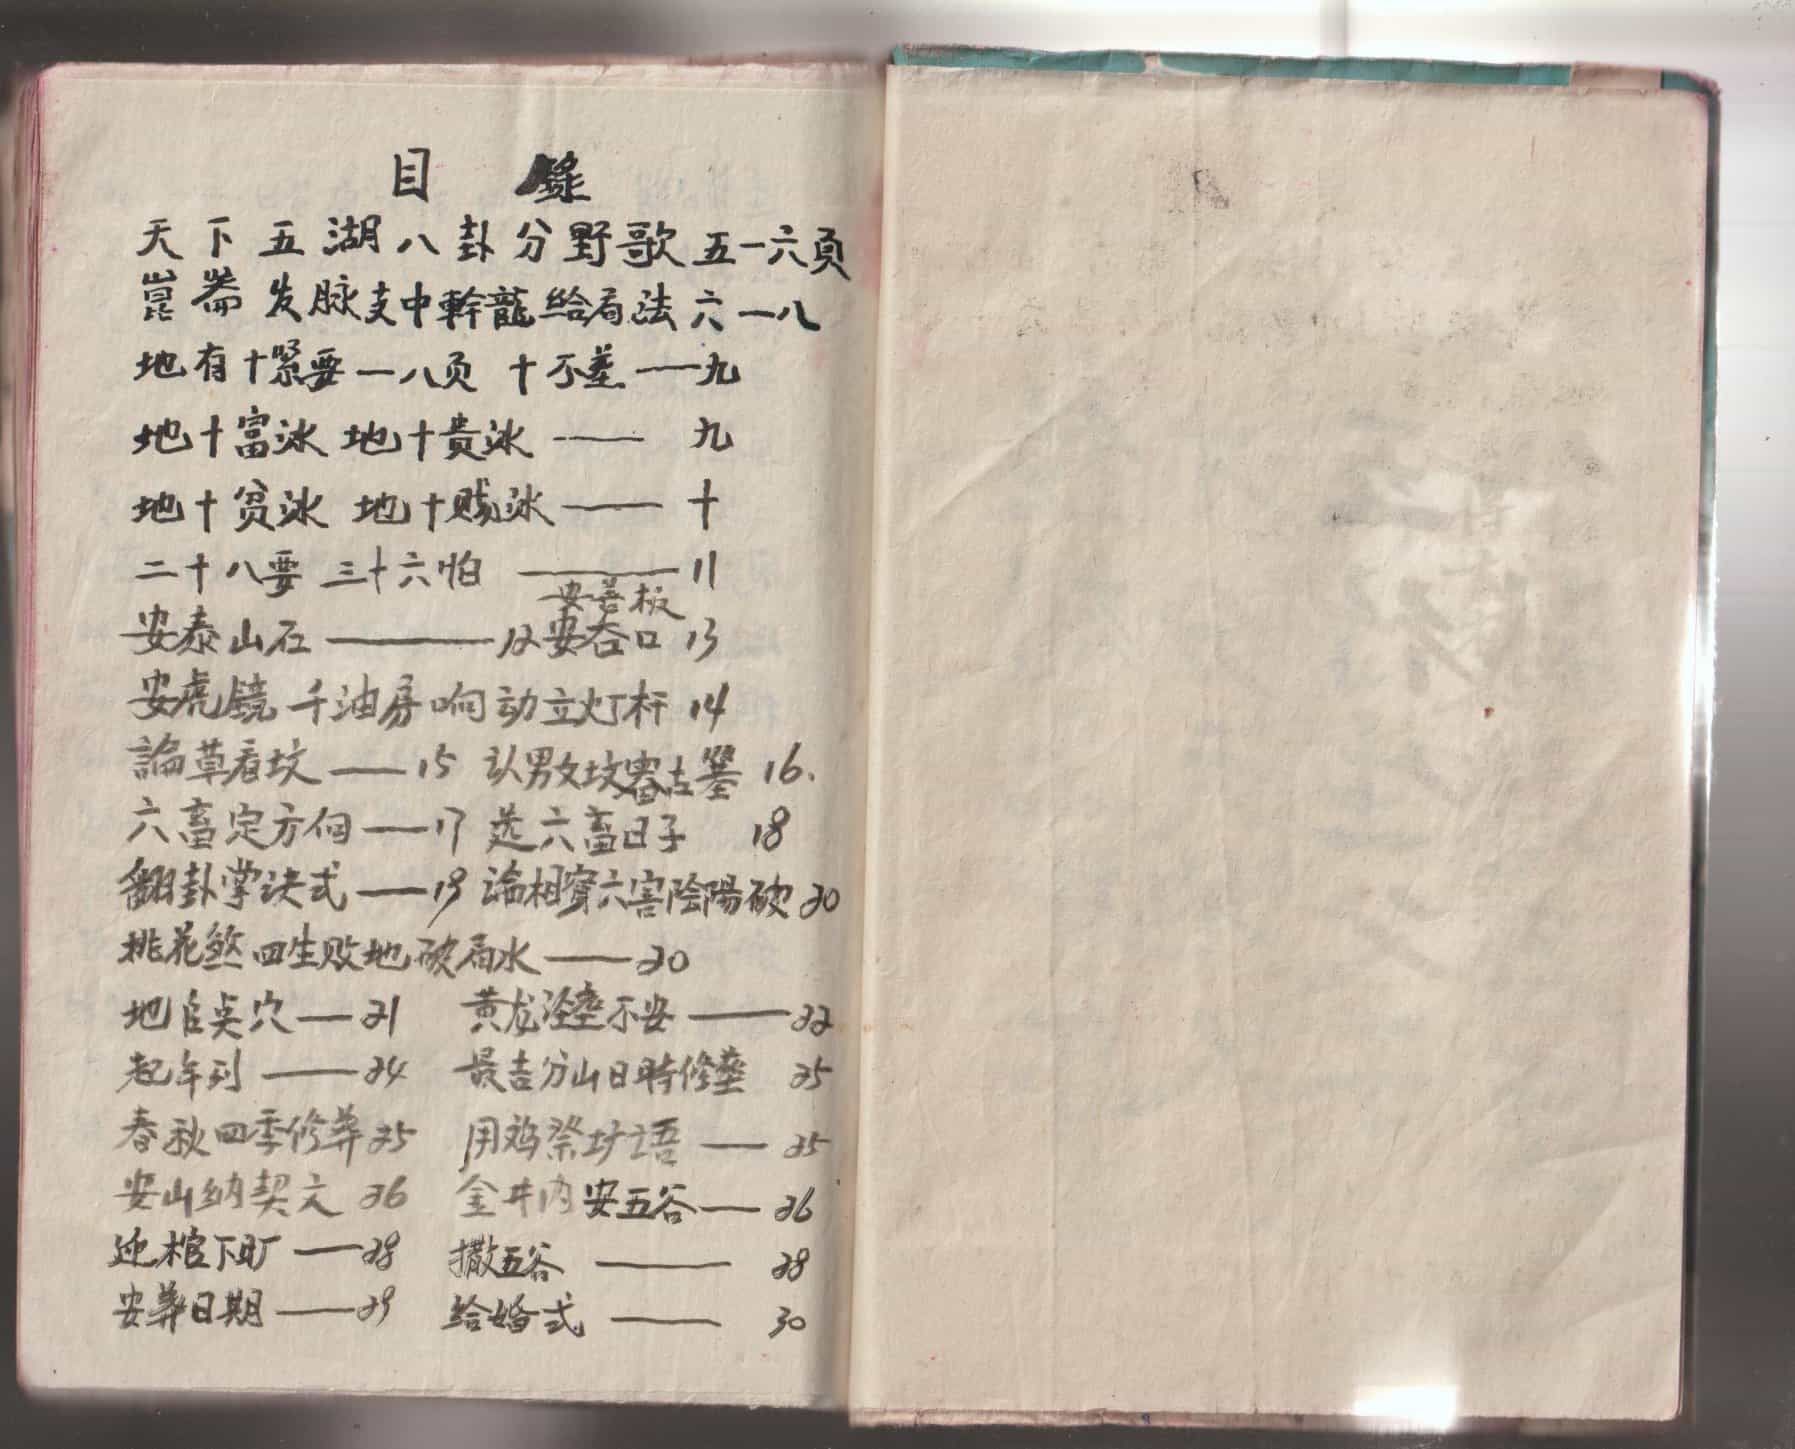 目 錄
天下五湖八卦分野歌 五一六頁
崑崙发脉支中幹龍给局法 六一八
地有十紧要一八页 十不葬——九
地十富冰 地十貴冰—— 九
地十贫冰 地十贱冰—— 十
二十八要 三十六怕 ——11
安善板
安泰山石——12 安吞口 13
安虎镜 千油房响动立灯杆 14
論草看坟——15 认男女坟審古墓 16.
六畜定方向——17 选六畜日子 18
翻卦掌决式——19 論相賓六害陰陽破 20
桃花煞四生败地破局水——20
地 点穴——21 黄龙 不安——22
起年列——24 最吉分山日時修塋 25
春秋四季修葬 25 用鸡祭圹语——25
安山纳契文 26 金井内安五谷——26
迎棺下圹——28 撒五谷——28
安葬日期——29 给婚式——30